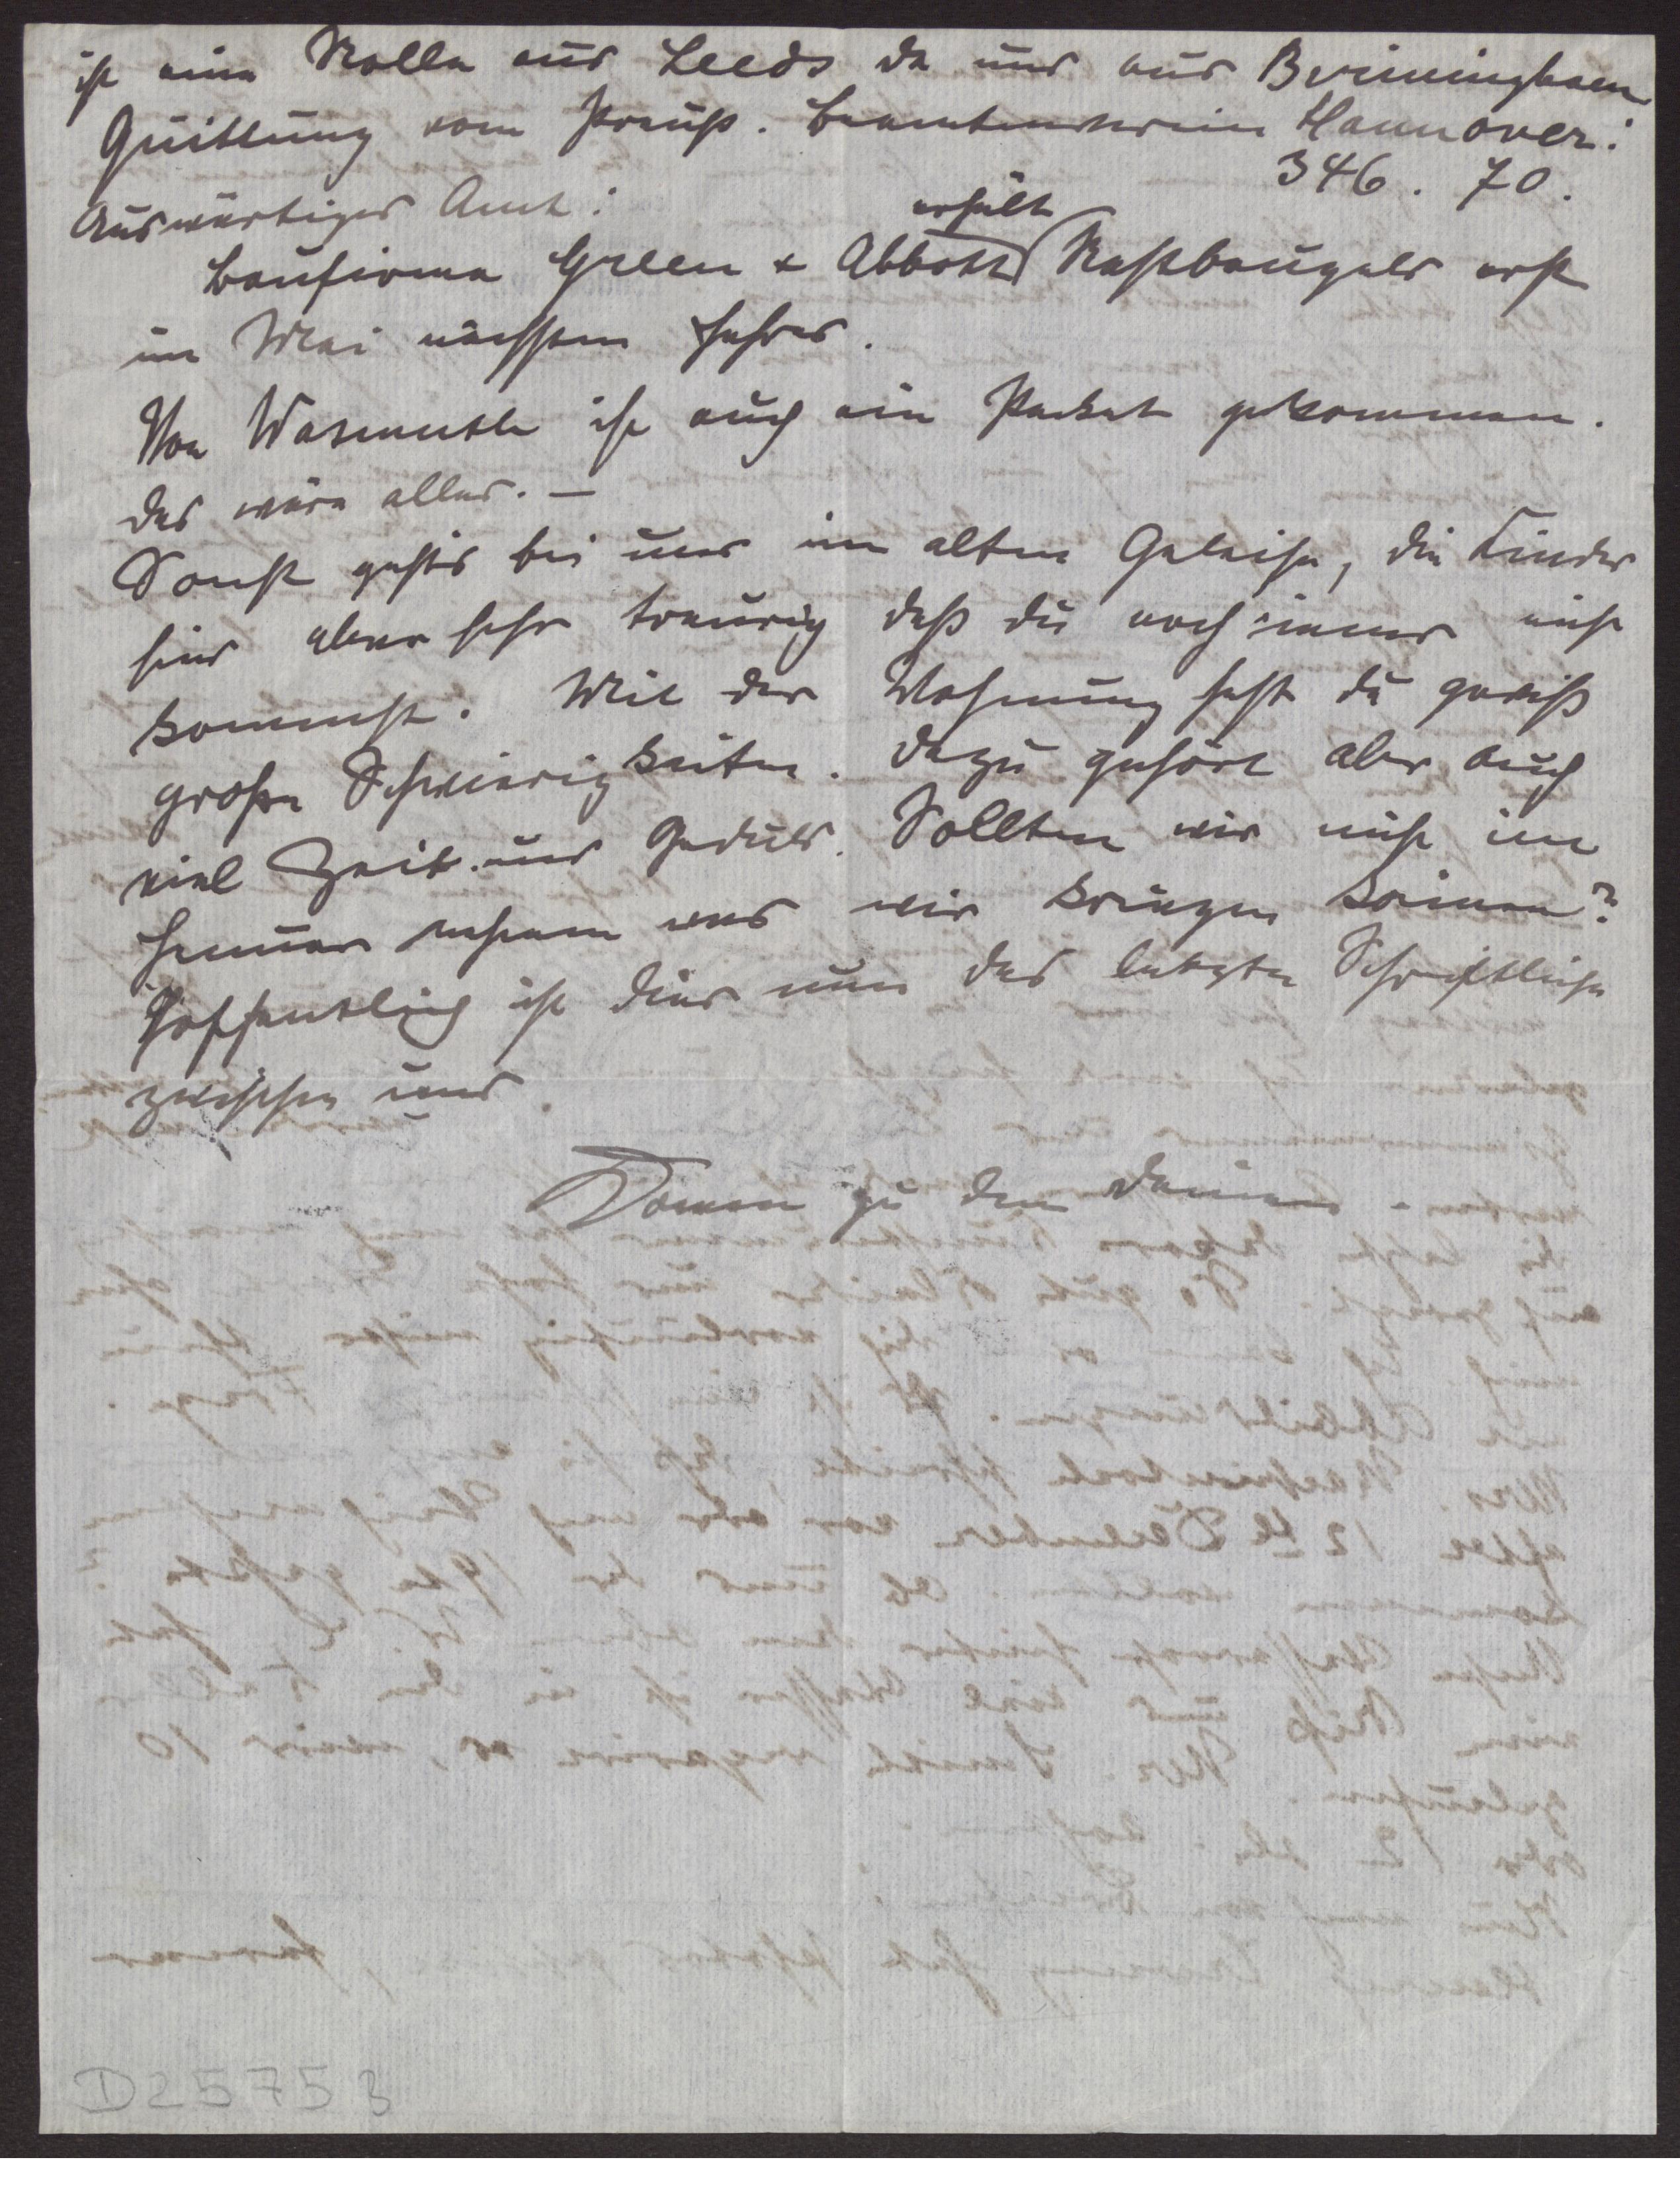 ist eine Rolle aus Leeds da und aus Birmingham
Quittung vom Preuß. Beamtenverein Hannover:
346. 70.
Auswärtiges Amt:
erhält
Baufirma Green & Abbott Restbaugeld erst
im Mai nächsten Jahres.
Von Wasmuth ist auch ein Packet gekommen.
Das wäre alles. —
Sonst gehts bei uns im alten Geleise, die Kinder
sind aber sehr traurig daß du noch immer nicht
kommst. Mit der Wohnung hast du gewiß
große Schwierigkeiten. Dazu gehört aber auch
viel Zeit und Geduld. Sollten wir nicht im
Januar nehmen was wir kriegen können?
Hoffentlich ist dies nun das letzte Schriftliche
zwischen uns.
zu den Deinen.
D25753